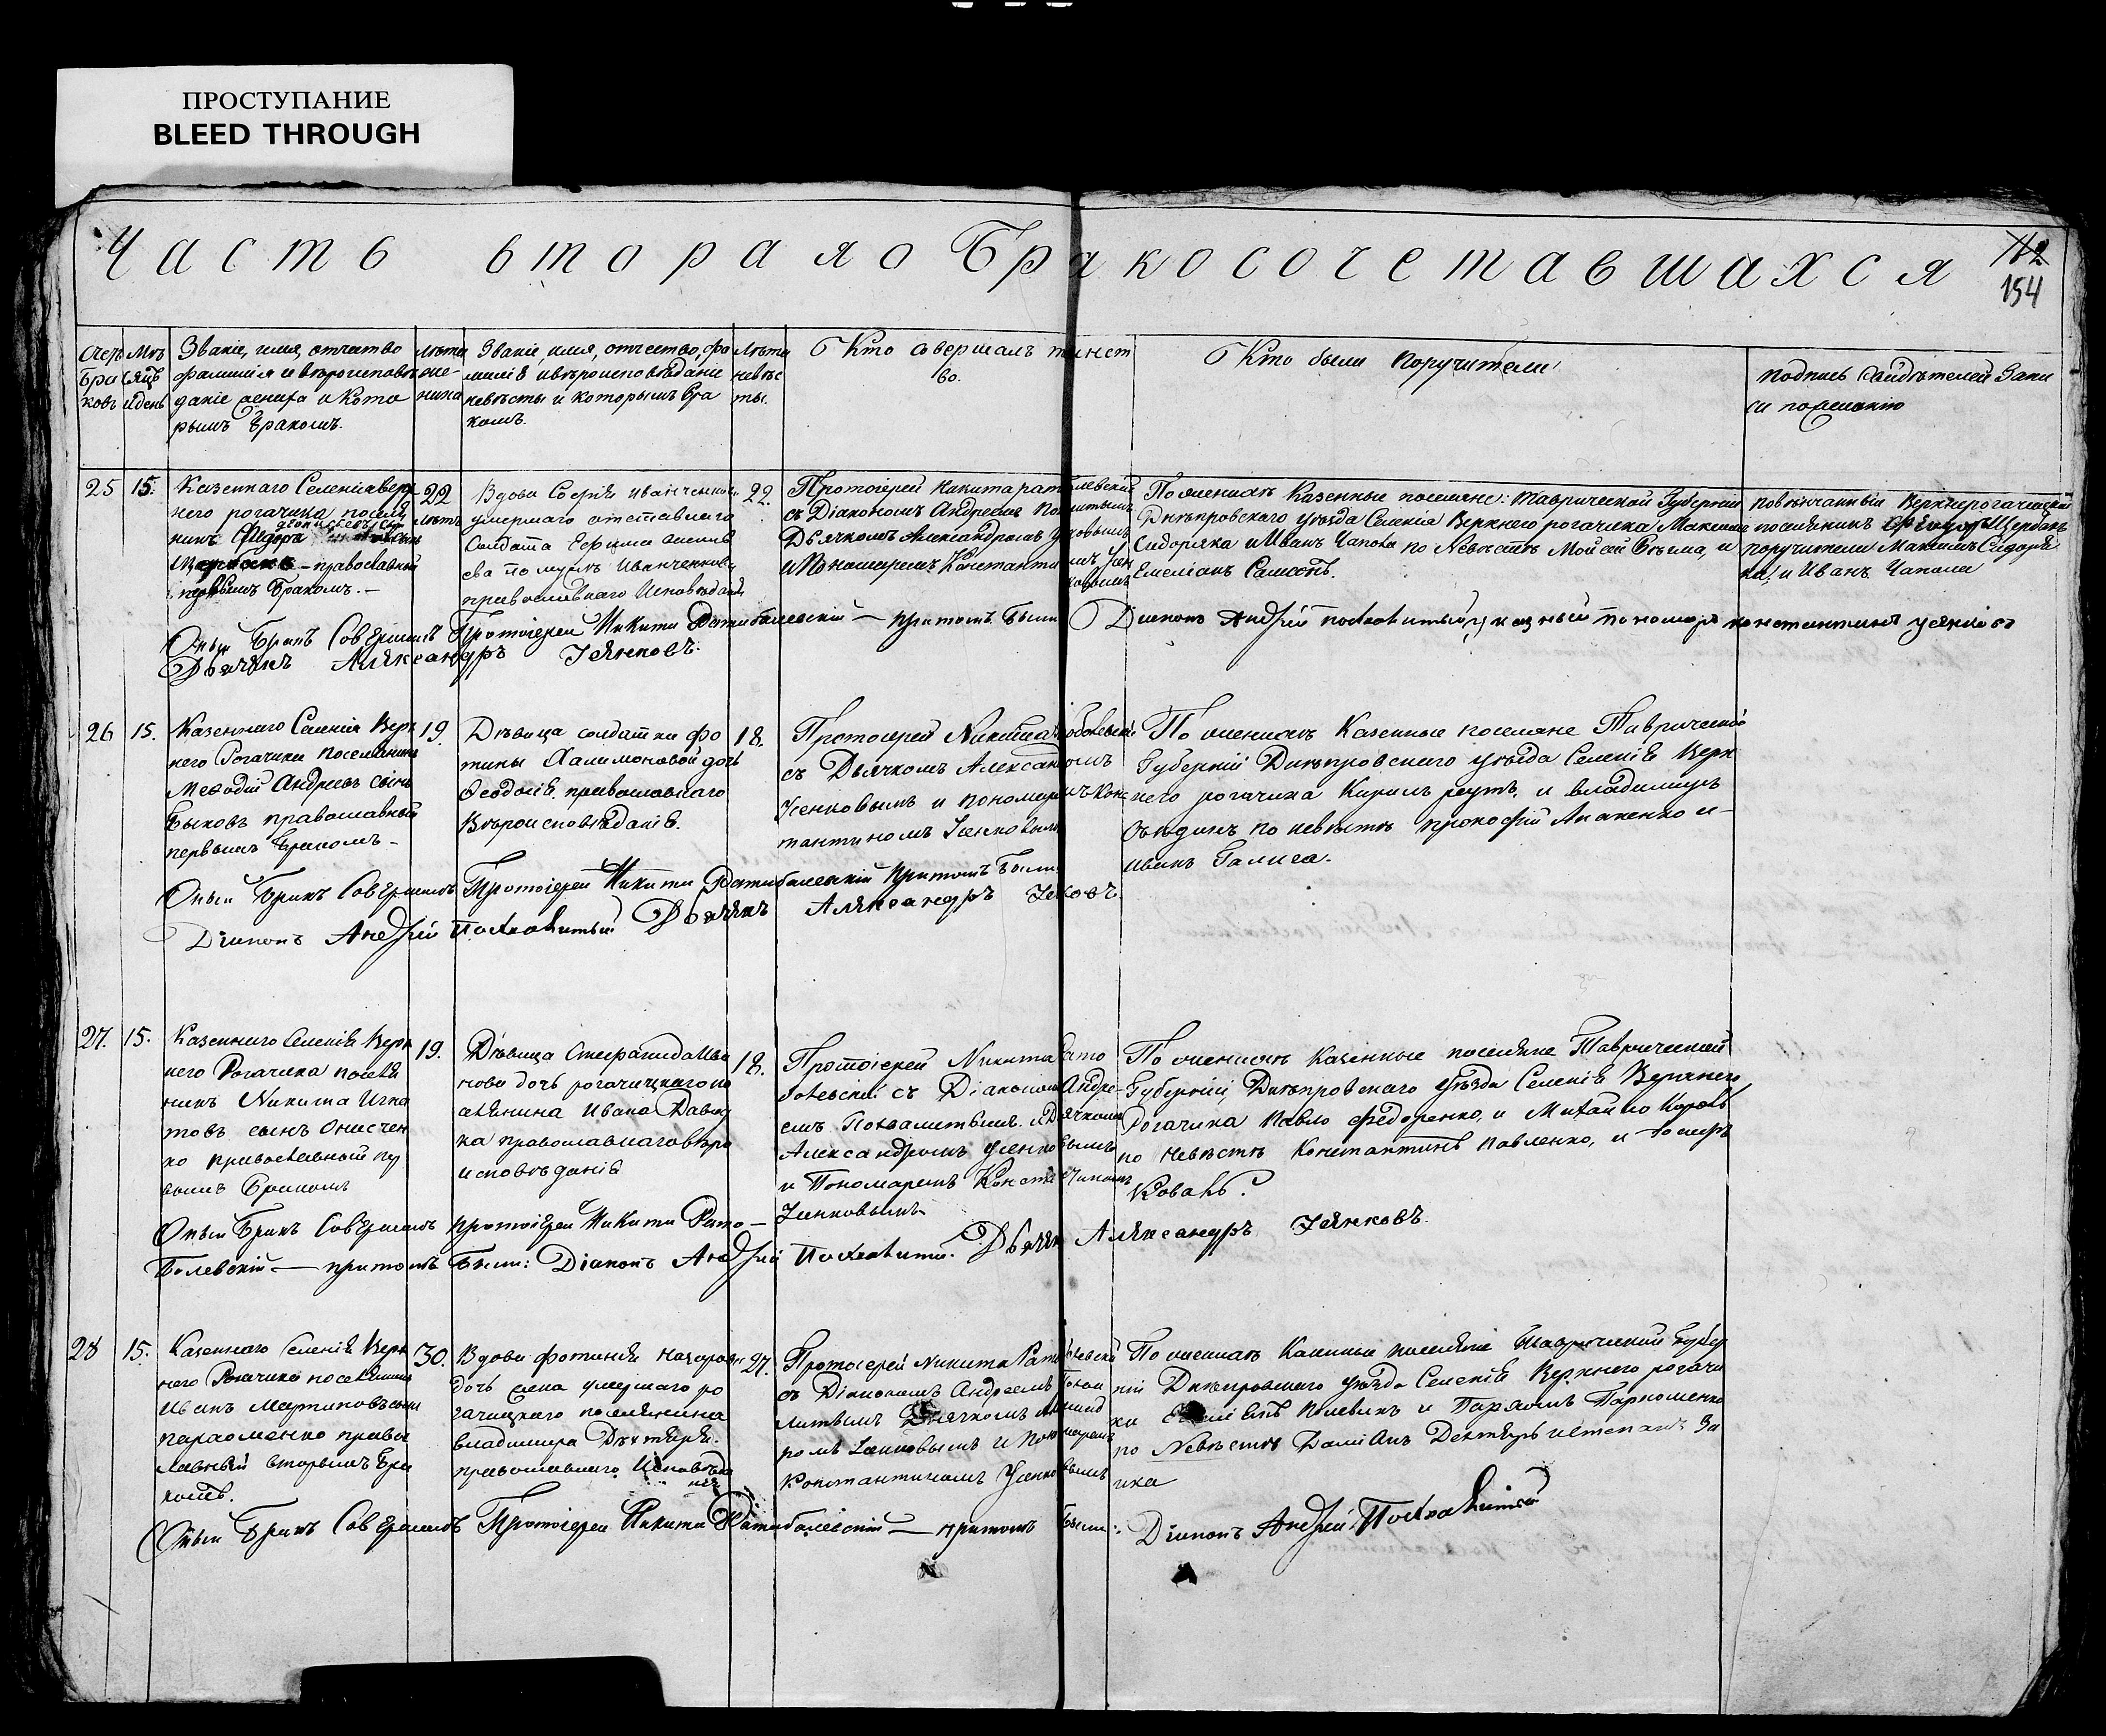 ПРОСТУПАНИЕ
BLEED THROUGH
Часть вторая о Бракосочетавшихся
112
154
Счетъ
бра
ковъ
Мѣ
сяцъ
и день
Званіе, имя, отчество
фамилія и вѣроисповѣ
даніе жениха и кото
рымъ бракомъ.
Лѣта
же-
ниха
Званіе, имя, отчество, фа
милія и вѣроисповѣданіе
невѣсты и которымъ бра
комъ.
Лѣта
невѣс
ты.
Кто совершалъ таинст
во.
Кто были поручители
подпись свидѣтелей запи
си по желанію
25
15.
Казеннаго Селенія верх
него рогачика поселя
нинъ Федоръ
Щербань - православный
первымъ бракомъ. -
22
лѣтъ
Вдова Софія Иванченкова
умершаго отставнаго
Солдата Ефима
православнаго Исповѣданія
22.
Протоіерей Никита
съ Діакономъ Андреемъ
Дьячкомъ Александромъ
и Пономаремъ Константи
По женихѣ Казенные поселяне: таврической Губерніи
Днѣпровскаго уѣзда Селенія Верхнего рогачика Максимъ
Сидоряка и Иванъ Чапола по Невѣстѣ Мойсей и
Емеліанъ
повѣнчанный Верхнерогачицкій
поселянинъ Щербань
поручители Максимъ Сидоря
ка, и Иванъ Чапола
Оный Бракъ Совершилъ Протоіерей Никита Ратиболевскій — притомъ Были Діаконъ Андрей Похвалитый указный пономарь константинъ усенковъ
Дьячекъ Александръ Усенковъ.
26
15.
Казеннаго Селенія Верх
него Рогачика поселянинъ
Меѳодій Андреевъ сынъ
Быковъ православный
первымъ бракомъ -
19.
Дѣвица солдатки фо
тины Халимоновой дочь
Ѳеодосія православнаго
Вѣроисповѣданія.
18.
Протоіерей Никита
съ Дьячкомъ Александромъ
Усенковымъ и пономаремъ Конс
тантиномъ Усенковымъ
По женихѣ Казенные поселяне Таврической
Губерніи Днѣпровскаго уѣзда Селенія Верх
него рогачика Кирилъ реутъ, и владимиръ
по невѣстѣ прокофій и
иванъ Галига.
Оный Бракъ Совершилъ Протоіерей Никита Ратиболевскій притомъ Были
Діаконъ Андрей Похвалитый Дьячекъ Александръ
27.
15.
Казеннаго Селенія Верх
него Рогачика поселя
нинъ Никита Игна
товъ сынъ Онисчен
ко православный пер
вымъ бракомъ
19.
Дѣвица Стефанида Ива
нова дочь рогачицкаго по
селянина Ивана Давид
ка православнаго вѣро
исповѣданія
18.
Протоіерей Никита Рато
болевскій съ Діакономъ Андре-
емъ Похвалитымъ. и Дьячкомъ
Александромъ Усенковымъ
и Пономаремъ Константиномъ
Усенковымъ
По женихѣ казенные поселяне Таврической
Губерніи, Днѣпровскаго уѣзда Селенія Верхнего
Рогачика Павло федоренко, и Михайло Король
по невѣстѣ Константинъ павленко, и
Коваль.
Оный Бракъ Совершилъ протоіерей Никита Рато—
Болевскій — притомъ Были: Діаконъ Андрей Похвалитый. Дьячекъ Александръ Усенковъ.
28
15.
Казеннаго Селенія Верх
него Рогачика поселянинъ
Иванъ Мартиновъ сынъ
пархоменко право
лавный вторымъ бра
комъ.
30.
Вдова фотинія назарова
дочь умершаго ро
гачицкаго поселянина
владимира Дехтяря.
православнаго Исповѣда
нія
27.
Протоіерей Никита
съ Діакономъ Андреемъ Похва
литымъ Дьячкомъ
ромъ Усенковымъ и Пономаремъ
Константиномъ Усенковымъ
По женихѣ Казенные поселяне Таврической Губер
ніи Днѣпровскаго уѣзда Селенія Верхнего рогачи
ка Полевикъ и Пархомъ Пархоменко
по Невѣстѣ Даміанъ Дехтярь и степанъ За
ика
Оный Бракъ Совершилъ Протоіерей Никита Ратиболевскій — притомъ Были: Діаконъ Андрей Похвалитый